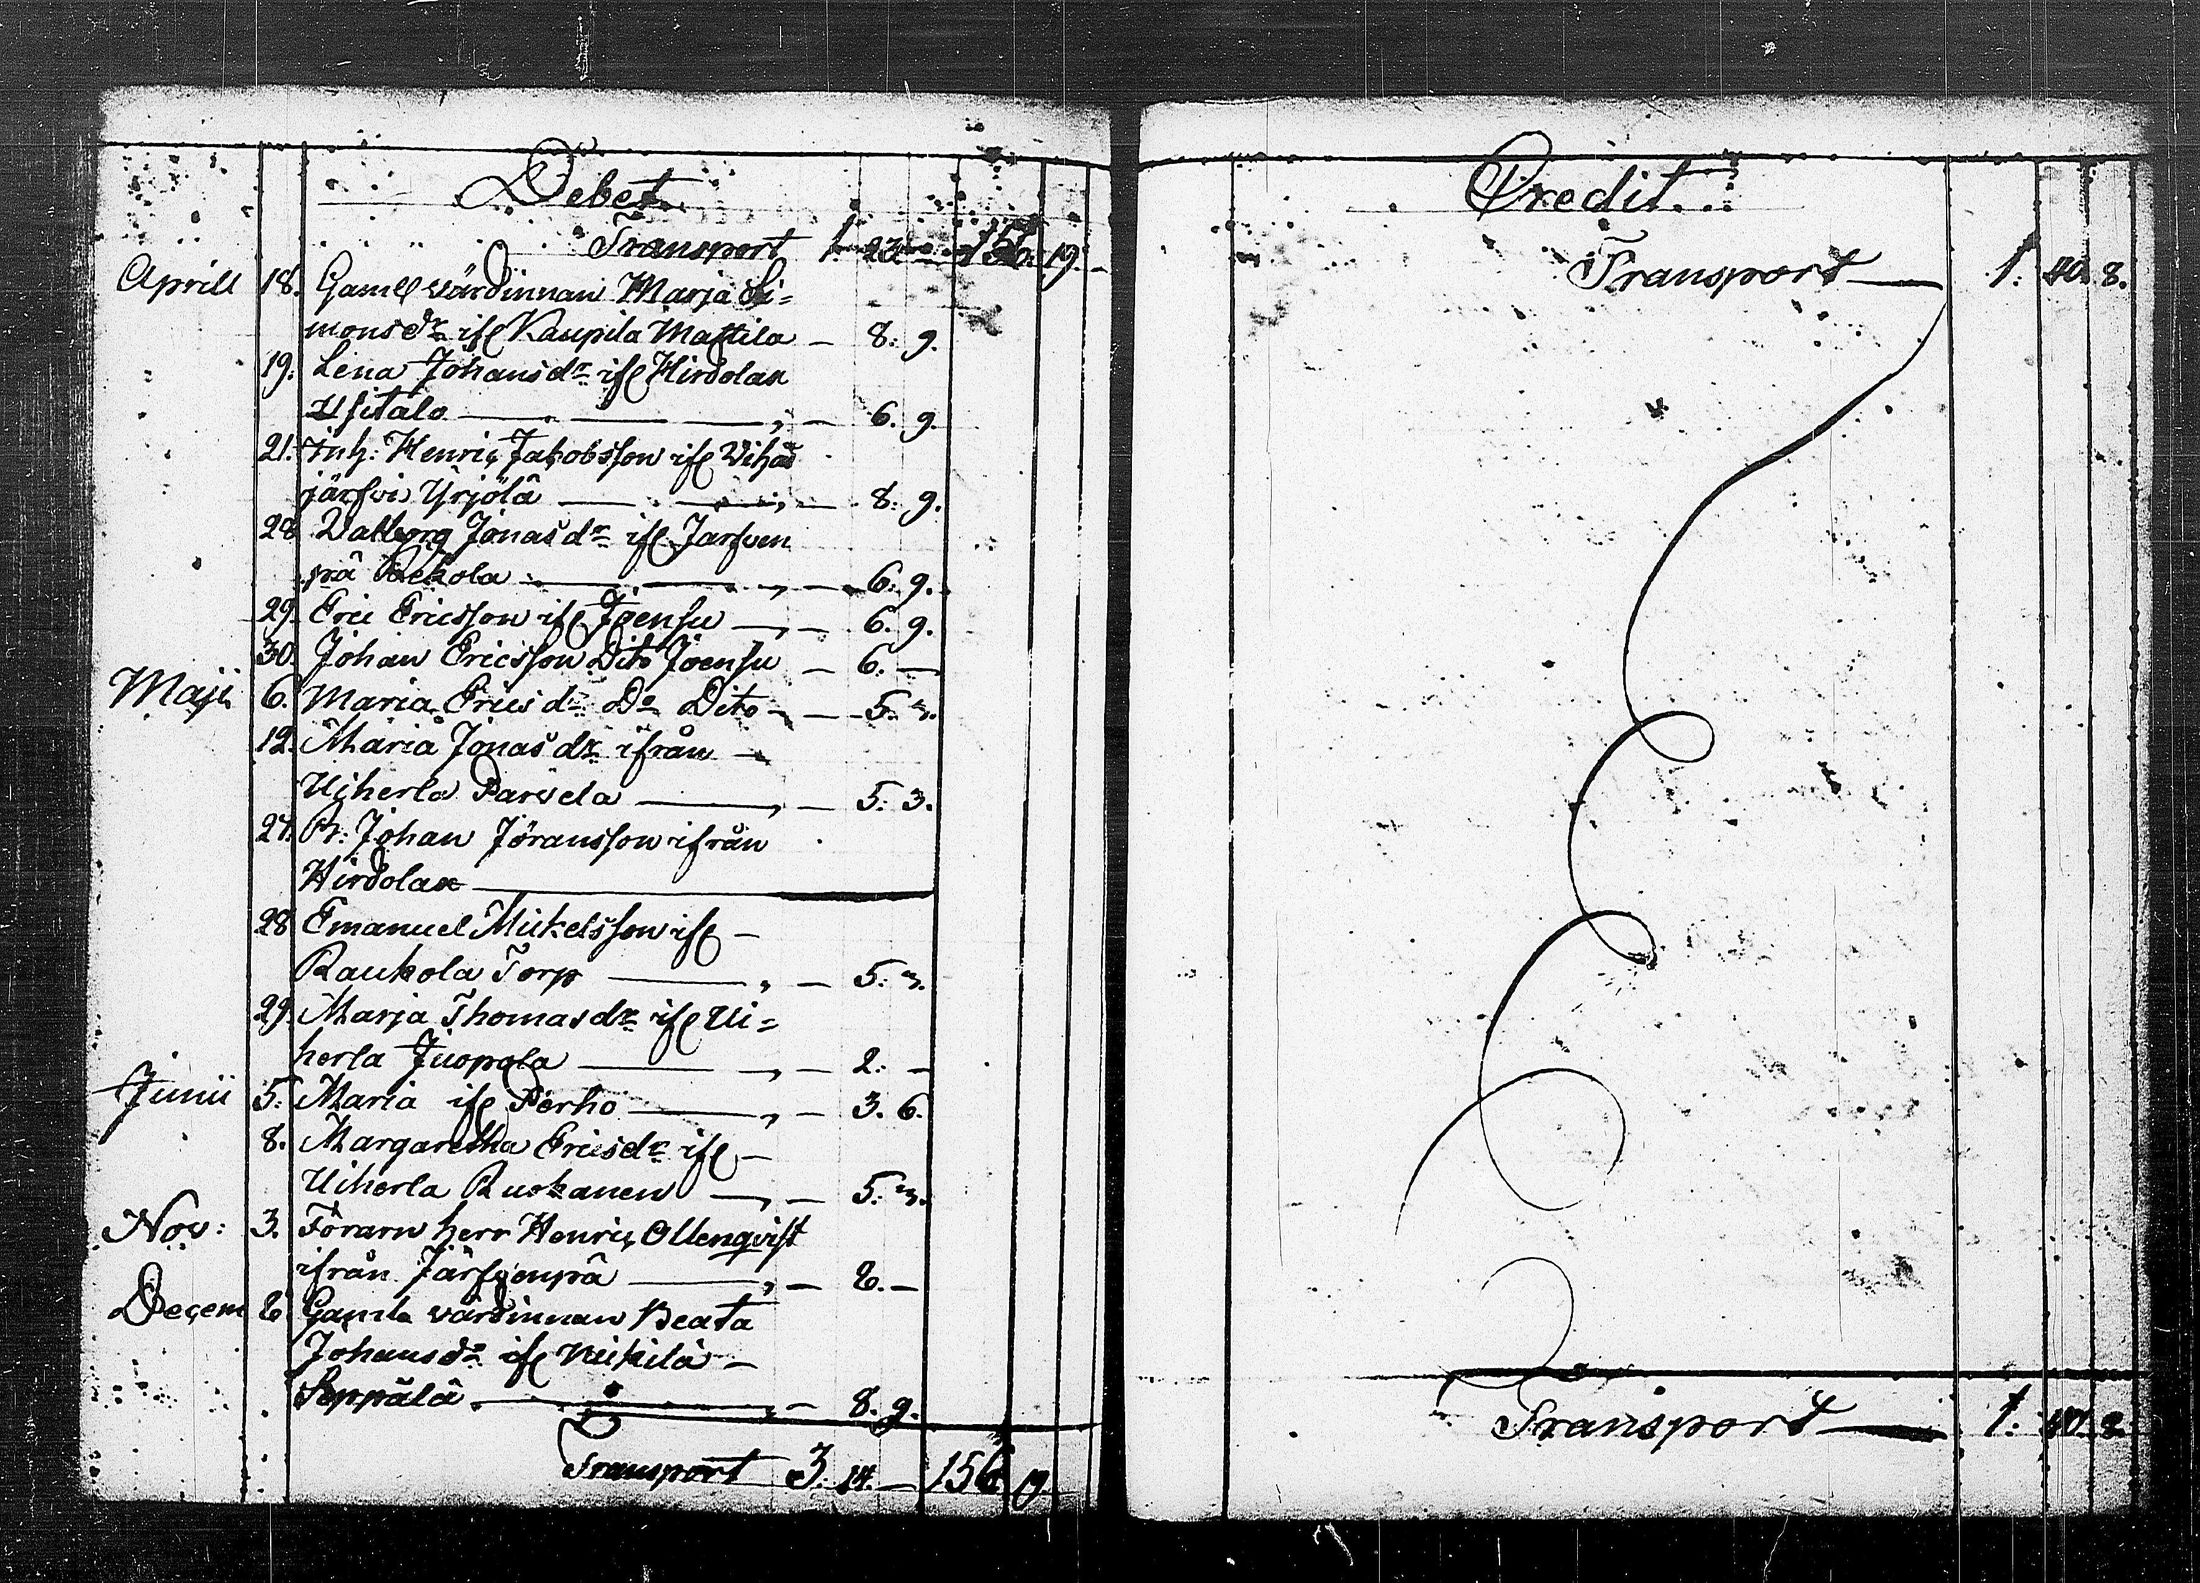 Debet
Transport 1. 23. — 156. 19. —
Aprill 18. Gaml värdinnan Marja Si=
monsdr ifr Kaupila Mattila — 8. 9.
19. Lena Johansdr ifr Hirdolax
Usitalo — 6. 9.
21. Inh: Henric Jakobsson ifr Vihas
järfvi Yrjölä — 8. 9.
28 Valborg Jonasdr ifr Jarfven
pä Packola — 6. 9.
29. Eric Ericsson ifr Joensu — 6. 9.
30. Johan Ericsson Dito Joensu — 6. —
Maji 6. Maria Ericsdr Do Dito — 5. 3.
12. Maria Jonasdr ifrån —
Uiherla Parvela — 5. 3.
27. Pr: Johan Jöransson ifrån
Hirdolax —
28 Emanuel Mickelsson ifr —
Raukola Torp — 5. 3.
29. Marja Thomasdr ifr Ui=
herla Juopola — 2. —
Junii 5. Maria ifr Perho — 3. 6.
8. Margaretha Ericsdr ifr —
Uiherla Ruokanen — 5. 3.
Nov: 3. Förarn herr Henric Ollenqvist
ifrån Järfvenpä — 2. —
Decem 2. Gamla värdinnan Beata
Johansdr ifr Nikilä —
Seppälä — 8. 9.
Transport 3. 14. — 156. 19
Credit
Transport — 1. 40. 8.
Transport — 1. 40. 8.